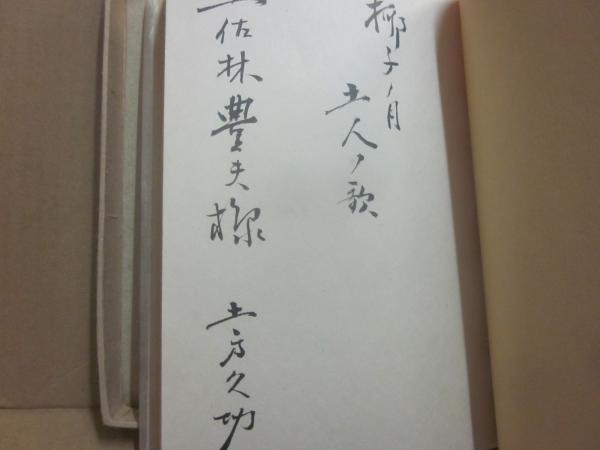 椰子ノ月
土人ノ歌
土佐林豊夫様
土方久功